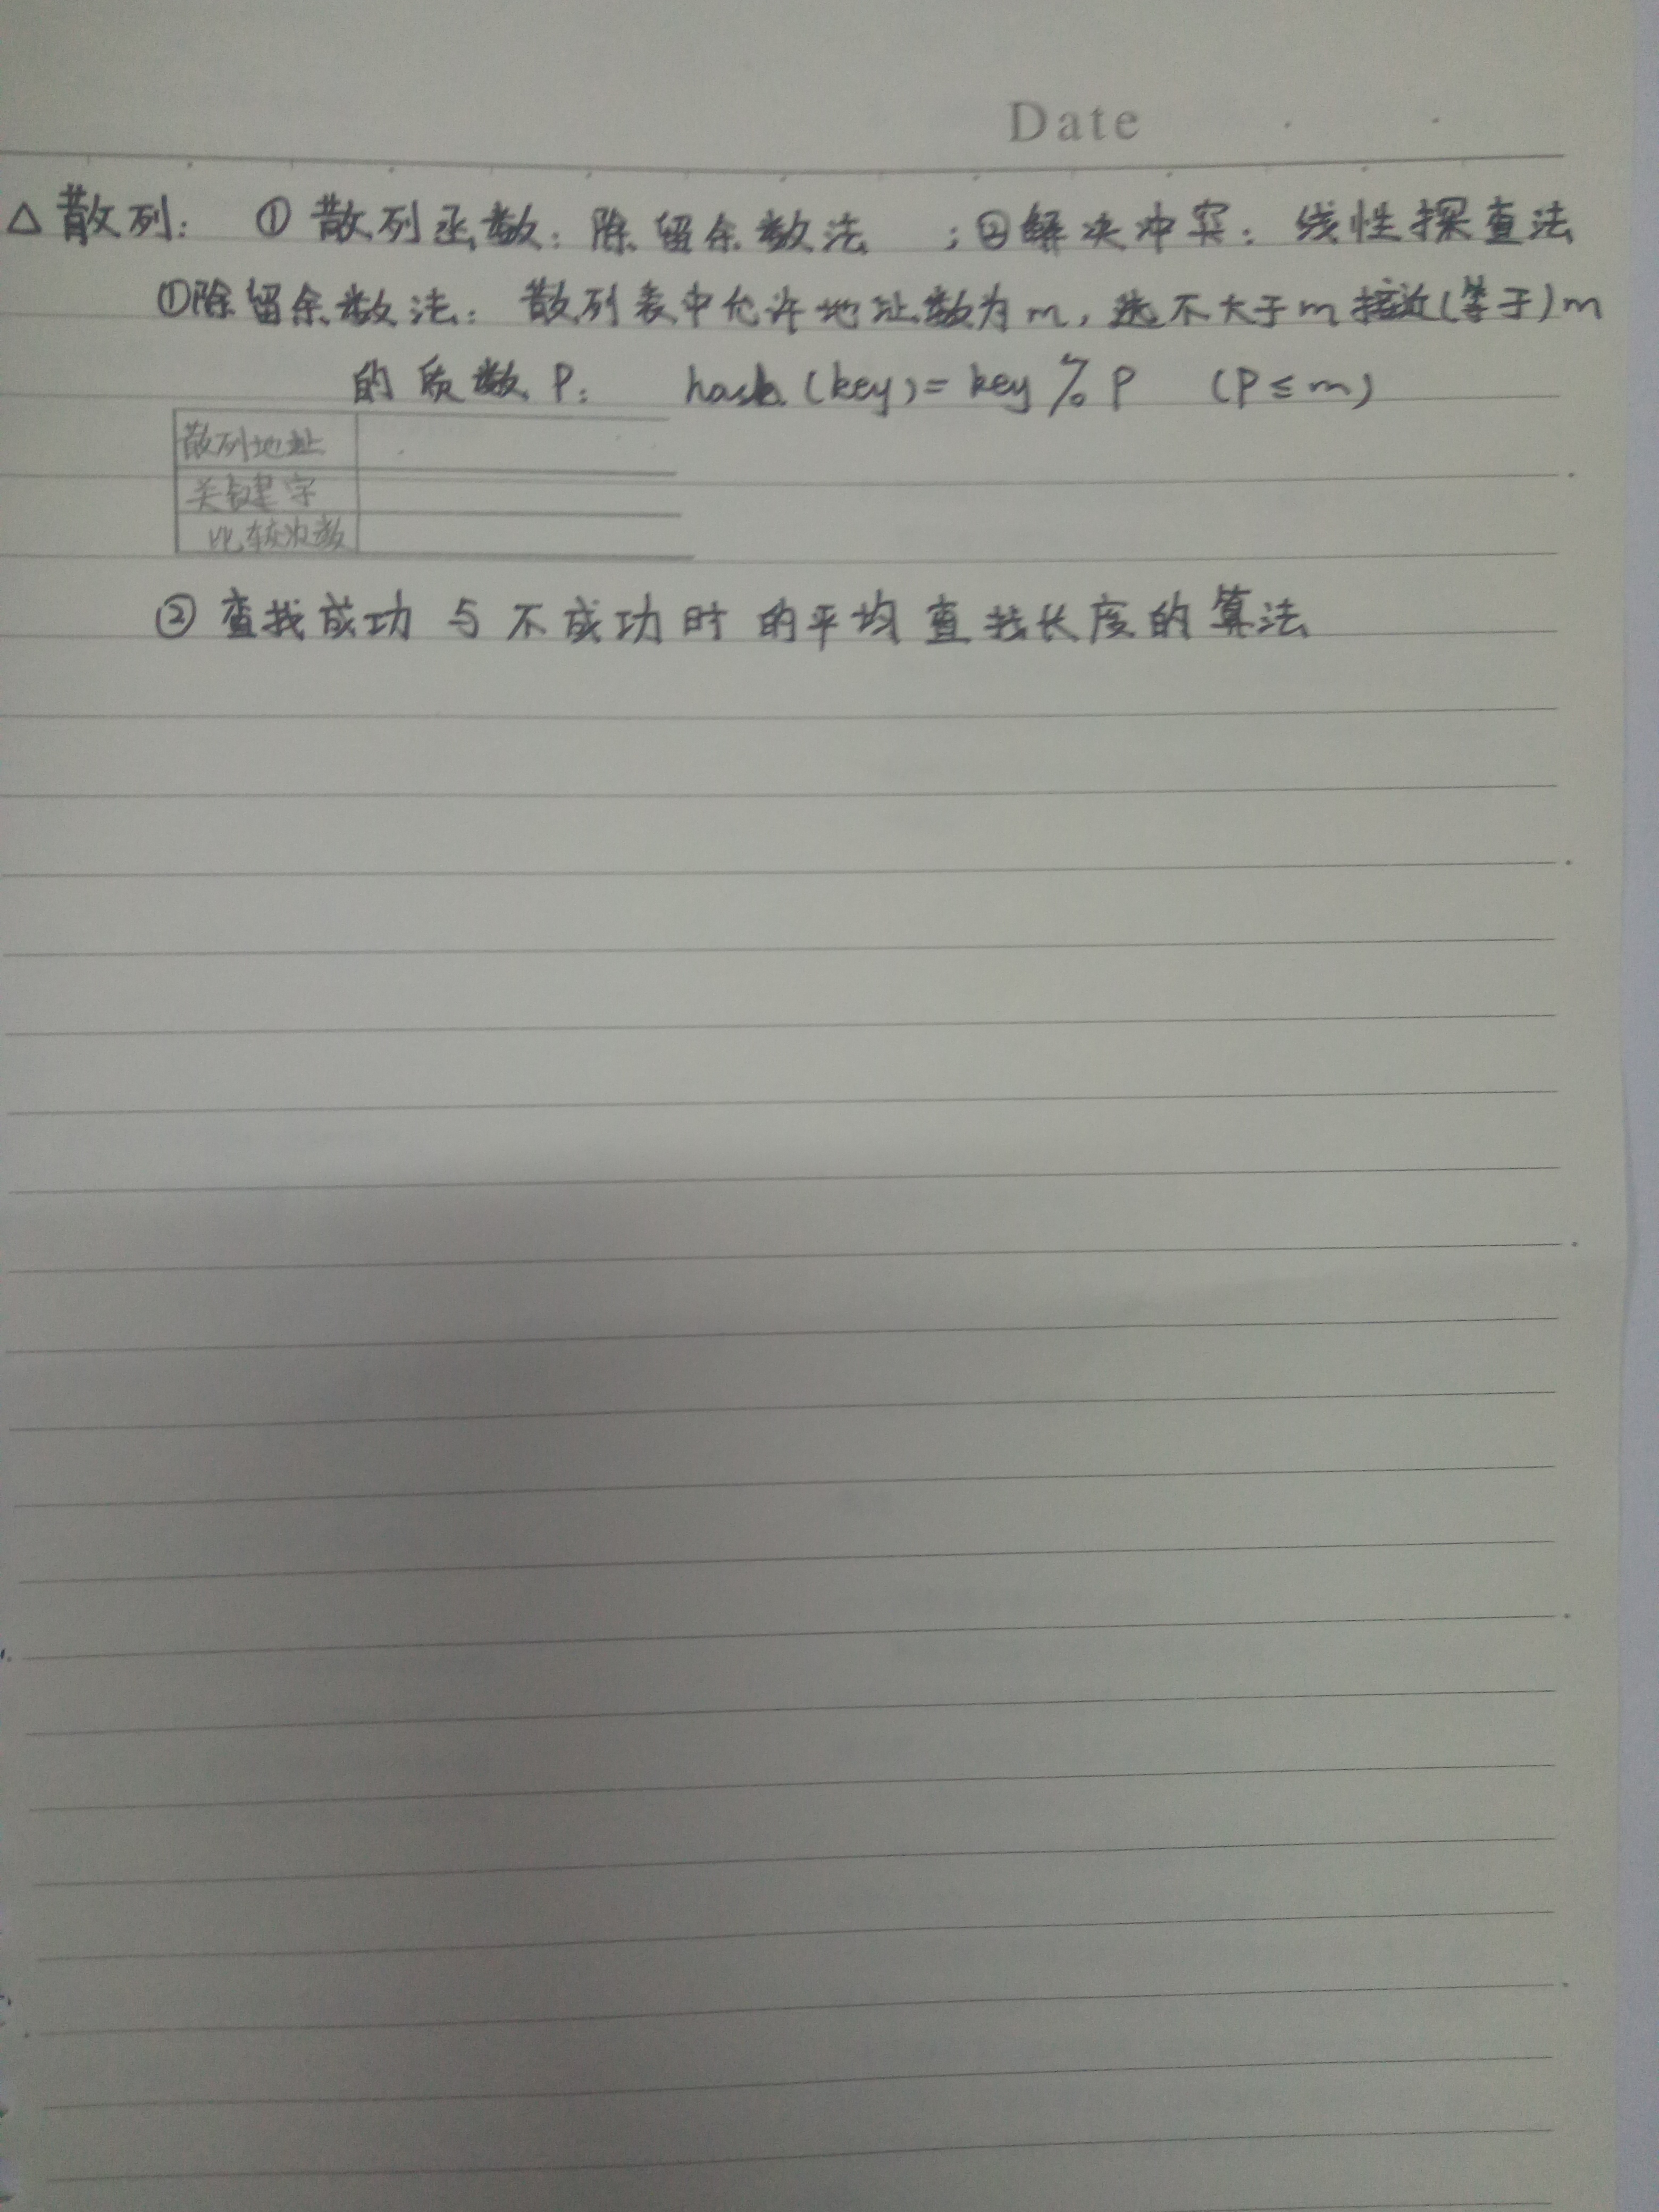 Date
△散列： ①散列函数：除留余数法 ；②解决冲突：线性探查法
①除留余数法：散列表中允许地址数为m，选不大于m接近(等于)m
的质数P： hash(key)=key%P (P≤m)
散列地址
关键字
比较次数
②查找成功与不成功时的平均查找长度的算法